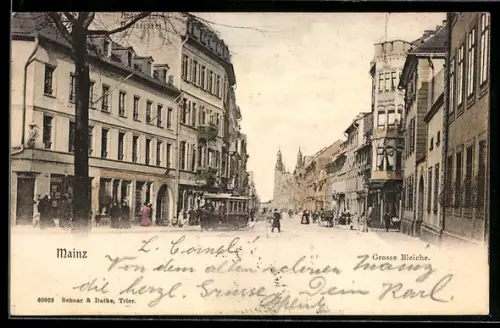 Mainz
Grosse Bleiche.
Von dem alten schönen Mainz
die herzl. Grüsse Dein Karl.
60909 Schaar & Dathe, Trier.